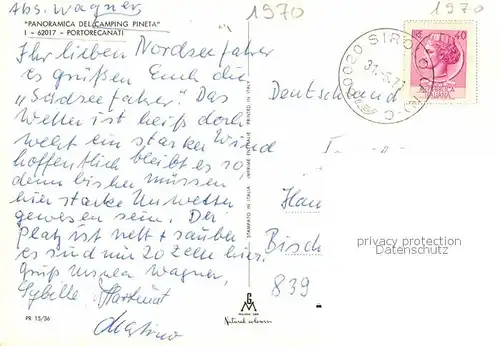 Abs. Wagner
1970
1970
"PANORAMICA DEL CAMPING PINETA"
I - 62017 - PORTORECANATI
Ihr lieben Nordseefahrer
es grüßen Euch die
"Südseefahrer". Das
Wetter ist heiß doch
weht ein starker Wind
hoffentlich bleibt es so,
denn bisher müssen
hier starke Unwetter
gewesen sein. Der
Platz ist nett + sauber
es sind nur 20 Zelte hier.
Gruß Ursula Wagner,
Sybille Hartmut
PR 15/36
STAMPATO IN ITALIA
PRINTED IN ITALY
MILANO
Natural colours
60020 SIROLO
LIRE 40
ITALIANA
Deutschland
Han
Bisch
839
privacy protection
Datenschutz